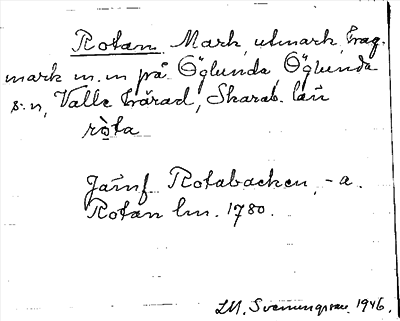 Rotan Mark, utmark, hag-
mark m.m på Öglunda, Öglunda
s:n, Valle härad, Skarab. län
ro̱ta
Jämf. Rotabacken, -a.
Rotan lm. 1780.
Svenungsson. 1946.